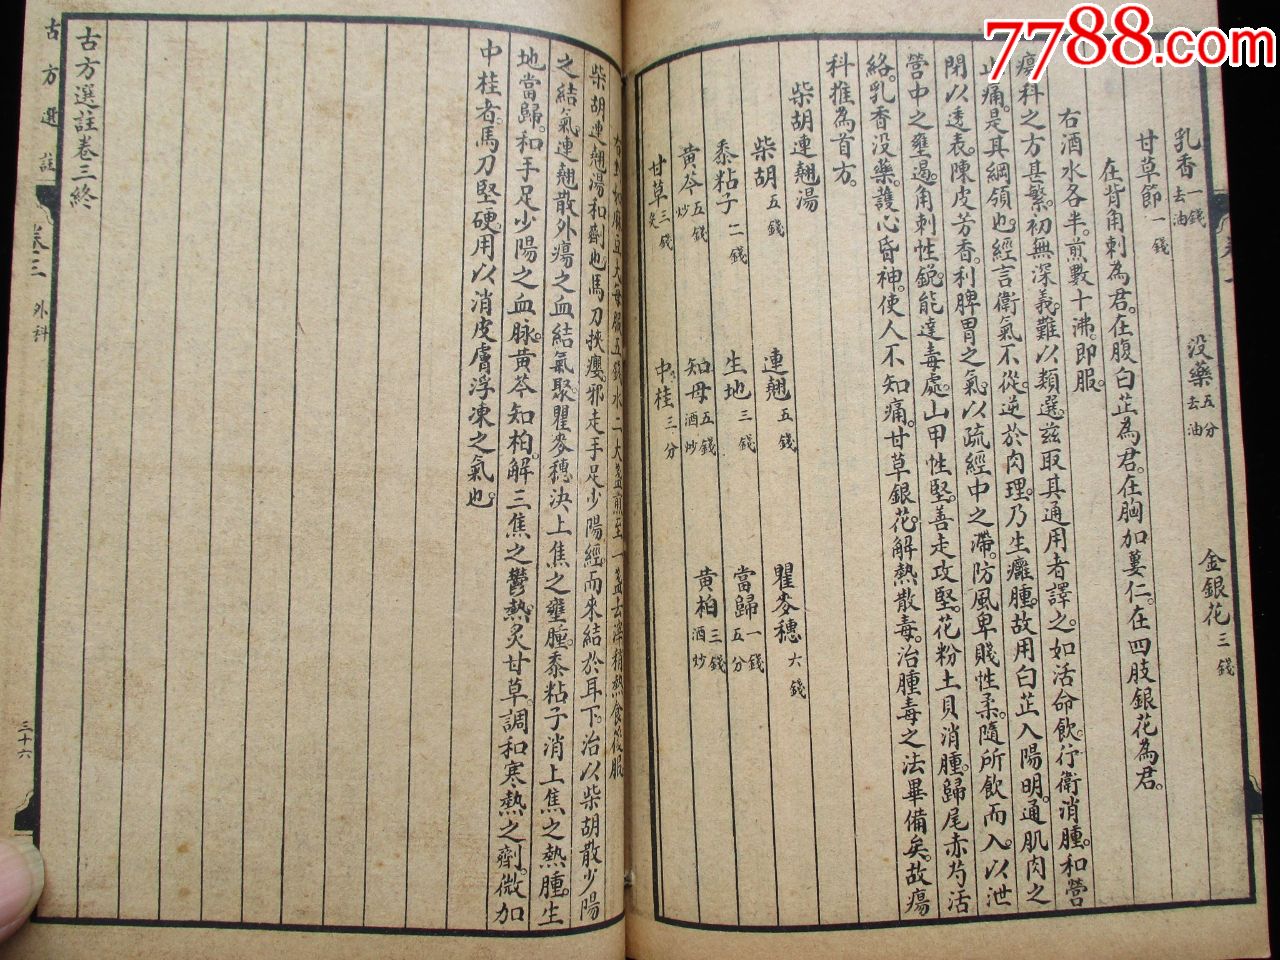 7788.com
乳香一錢去油　没藥五分去油　金銀花三錢
甘草節一錢
在背角刺為君。在腹白芷為君。在胸加蔞仁。在四肢銀花為君。
右酒水各半。煎數十沸。即服。
瘍科之方甚繁。初無深義。難以類選。兹取其通用者譯之。如活命飲。行衛消腫。和營
止痛。是其綱領也。經言衛氣不從。逆於肉理。乃生癰腫。故用白芷入陽明。通肌肉之
閉以透表。陳皮芳香。利脾胃之氣。以疏經中之滯。防風卑賤性柔。隨所飲而入。以泄
營中之壅遏。角刺性銳。能達毒處。山甲性堅。善走攻堅。花粉土貝消腫。歸尾赤芍活
絡。乳香没藥。護心昏神。使人不知痛。甘草銀花。解熱散毒。治腫毒之法畢備矣。故瘍
科推為首方。
柴胡連翹湯
柴胡五錢　連翹五錢　瞿麥穗六錢
黍粘子二錢　生地三錢　當歸一錢五分
黄芩五錢炒　知母五錢酒炒　黄柏三錢酒炒
甘草三錢炙　中桂三分
右剉如麻豆大每服五錢水二大盞煎至一盞去滓稍熱食後服
柴胡連翹湯和劑也。馬刀挾癭。邪走手足少陽經。而來結於耳下。治以柴胡散少陽
之結氣。連翹散外瘍之血結氣聚。瞿麥穗決上焦之壅腫。黍粘子消上焦之熱腫。生
地當歸。和手足少陽之血脉。黄芩知柏。解三焦之鬱熱。炙甘草。調和寒熱之劑。微加
中桂者。馬刀堅硬。用以消皮膚浮凍之氣也。
古方選註卷三終
古方選註
卷三　外科
三十六